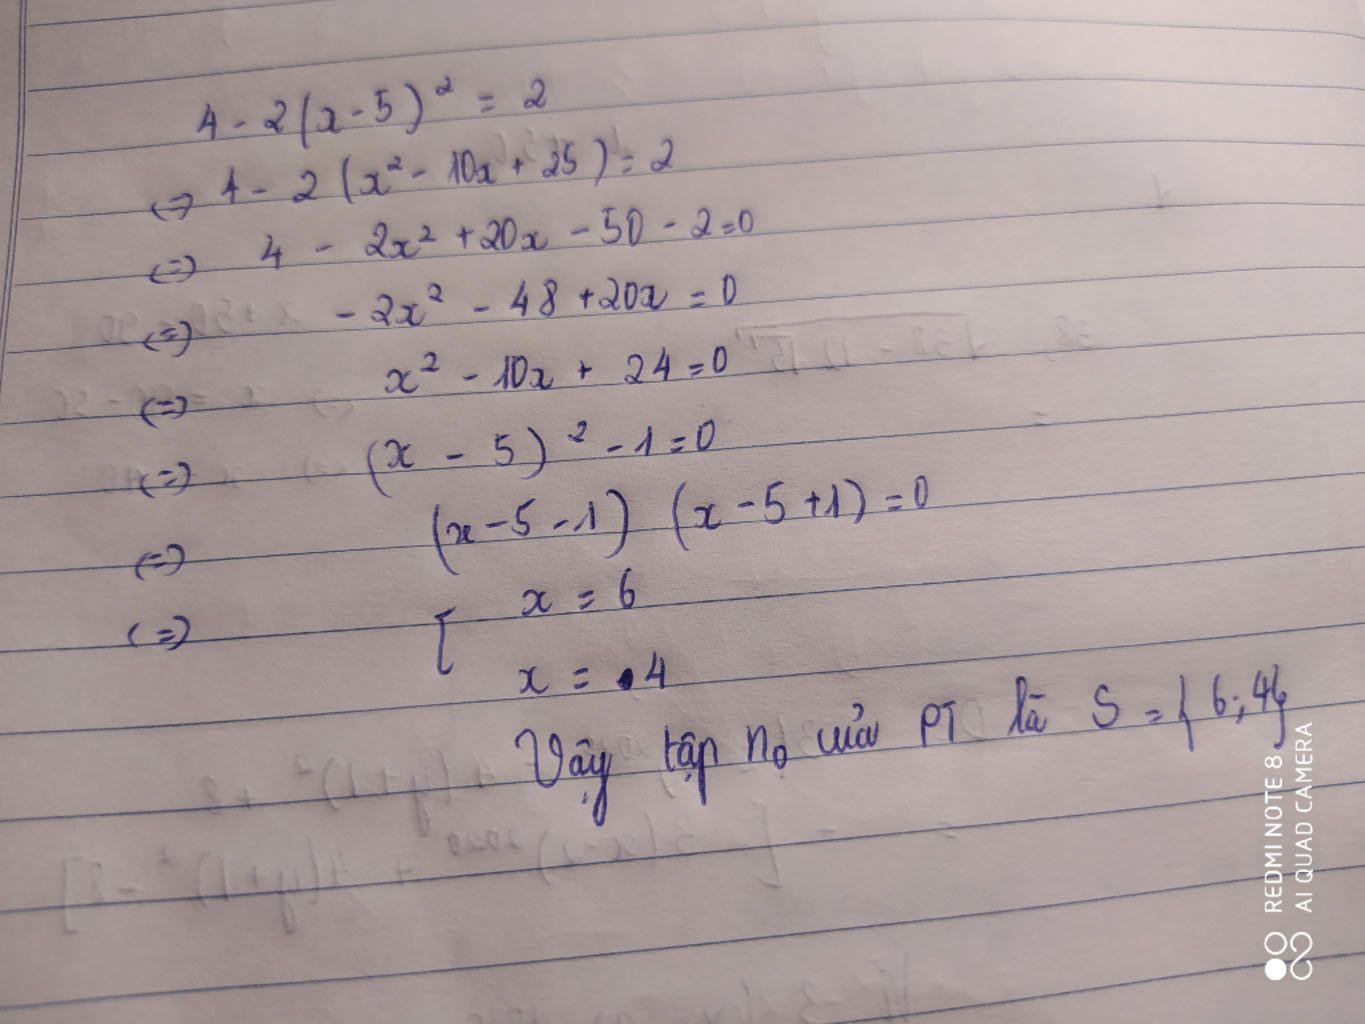 4 - 2(x - 5)² = 2
<=> 4 - 2(x² - 10x + 25) = 2
<=> 4 - 2x² + 20x - 50 - 2 = 0
<=> - 2x² - 48 + 20x = 0
<=> x² - 10x + 24 = 0
<=> (x - 5)² - 1 = 0
<=> (x - 5 - 1) (x - 5 + 1) = 0
<=> [ x = 6
x = 4
Vậy tập n₀ của PT là S = {6; 4}
REDMI NOTE 8
AI QUAD CAMERA